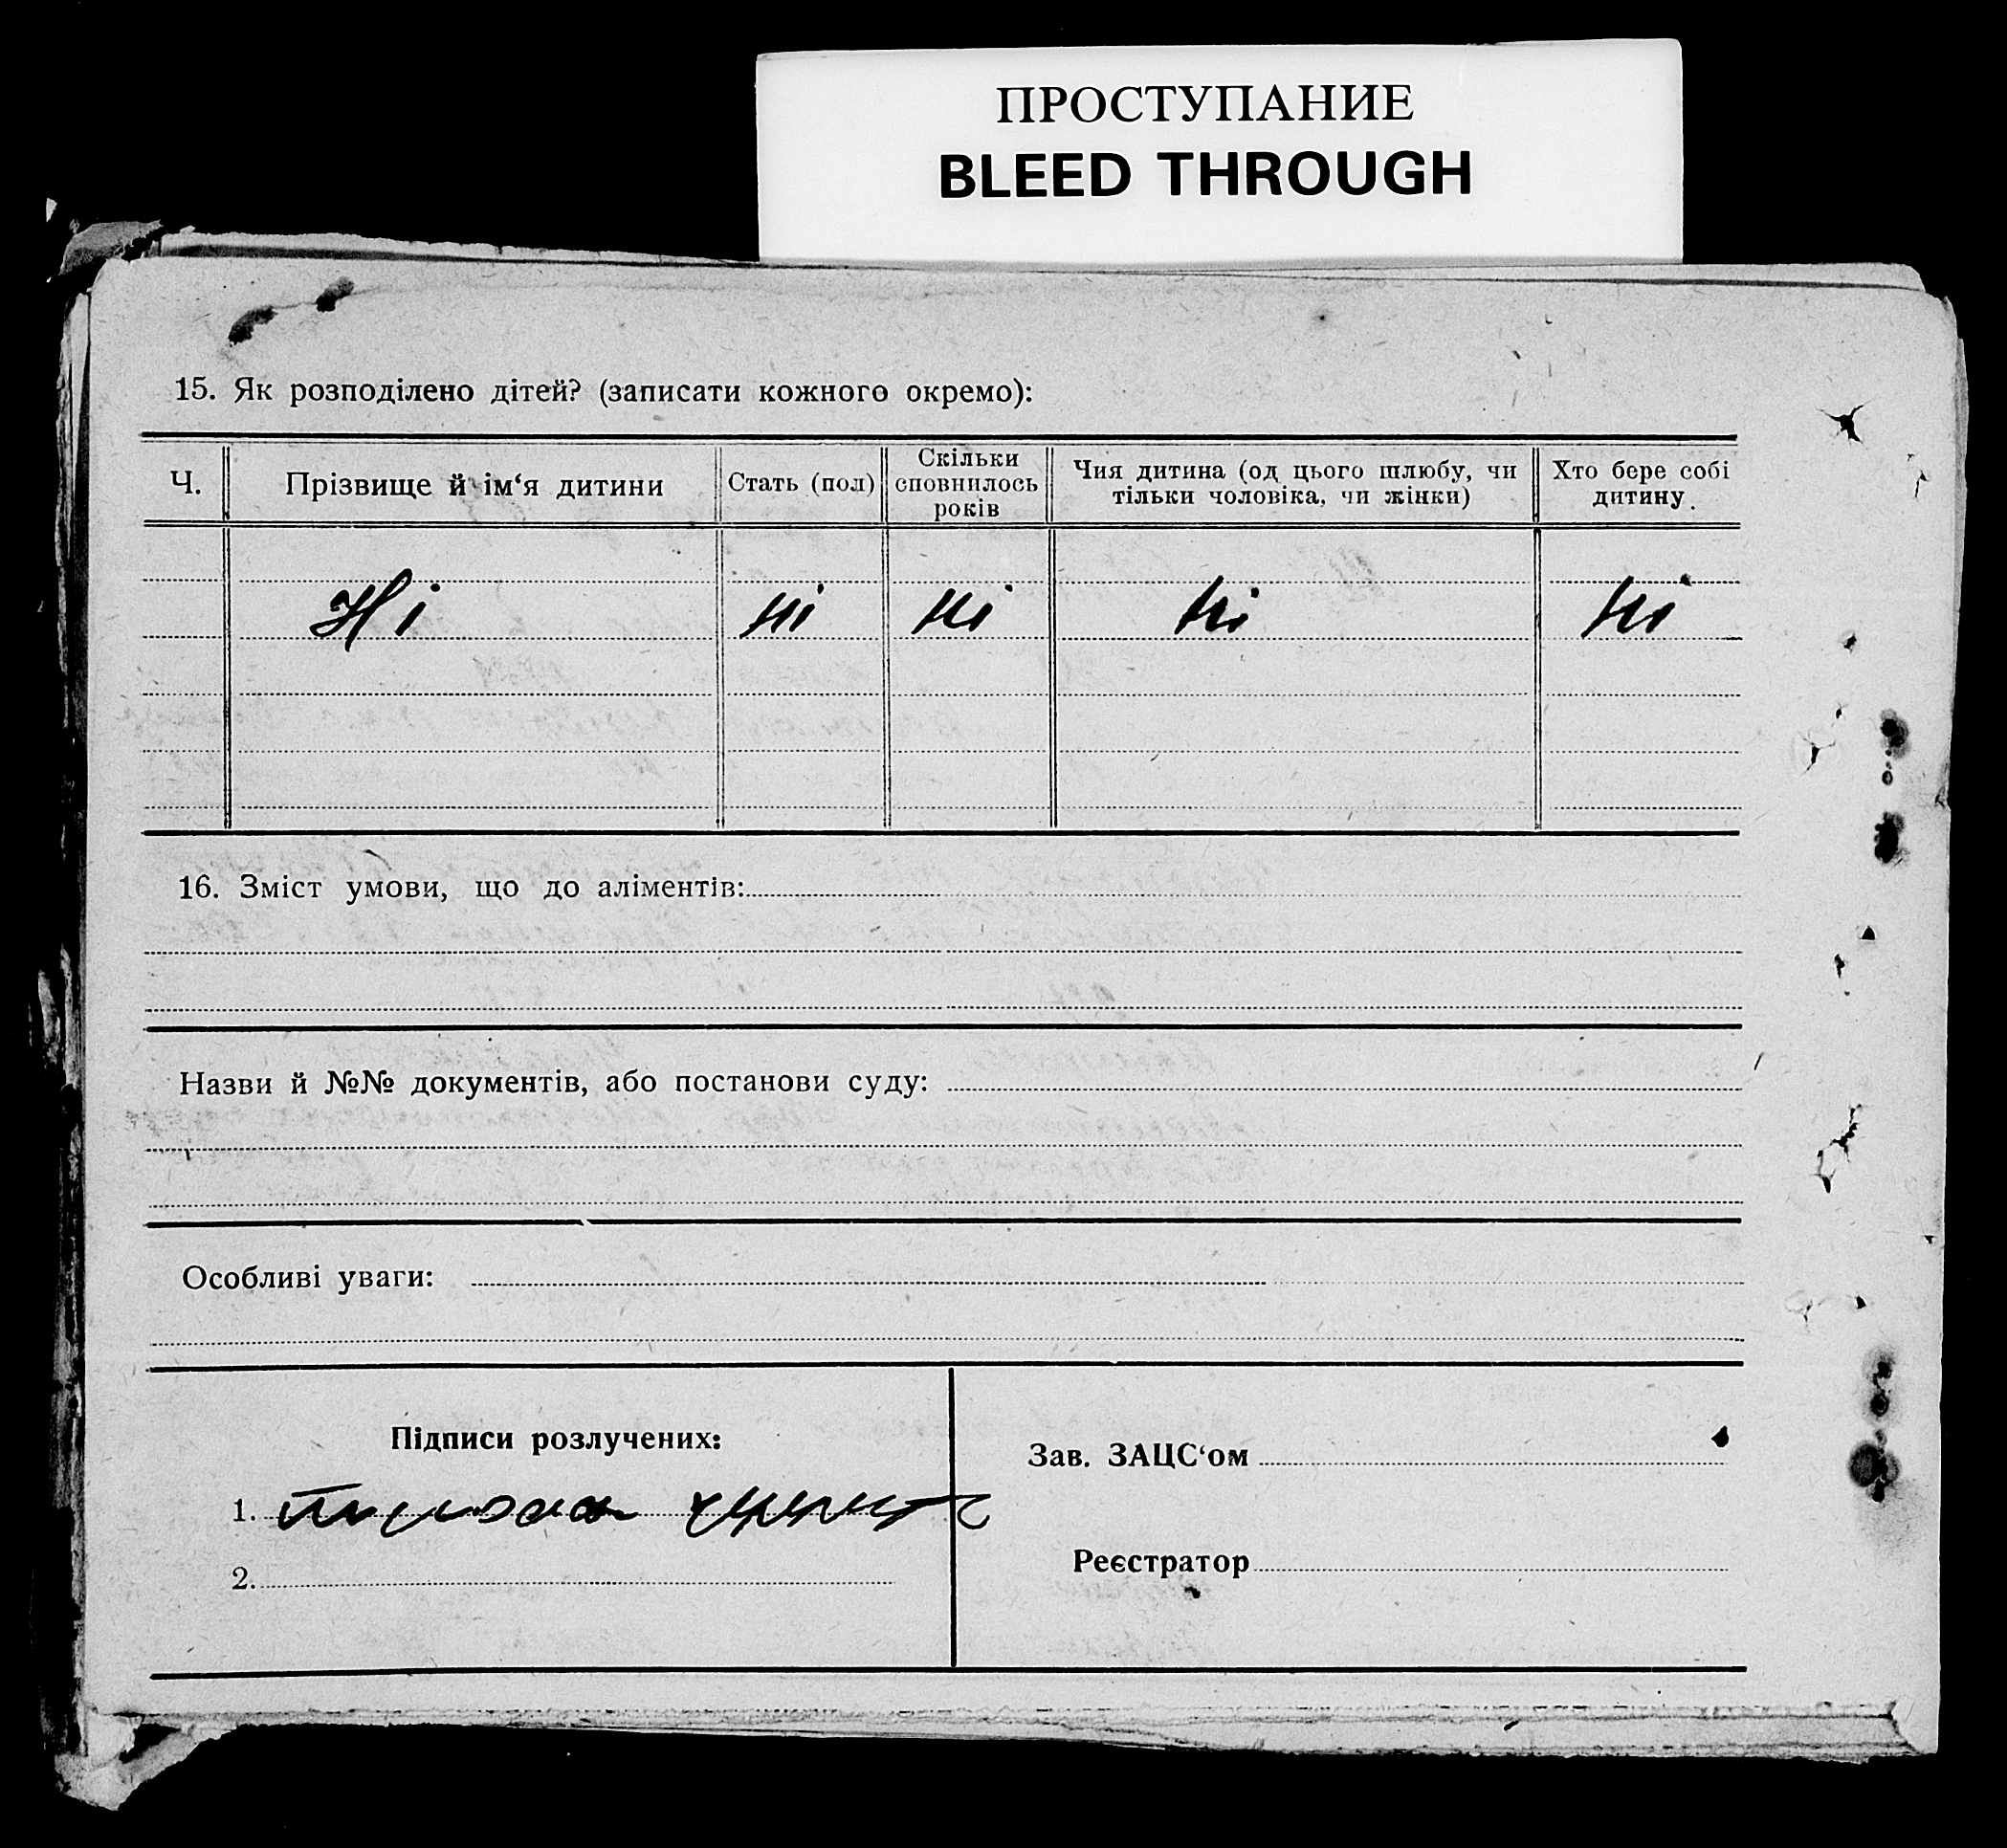 ПРОСТУПАНИЕ
BLEED THROUGH
15. Як розподілено дітей? (записати кожного окремо):
Ч. Прізвище й ім‘я дитини Стать (пол) Скільки сповнилось років Чия дитина (од цього шлюбу, чи тільки чоловіка, чи жінки) Хто бере собі дитину.
Ні ні ні ні ні
16. Зміст умови, що до аліментів:
Назви й №№ документів, або постанови суду:
Особливі уваги:
Підписи розлучених:
Зав. ЗАЦС‘ом
1.
Реєстратор
2.